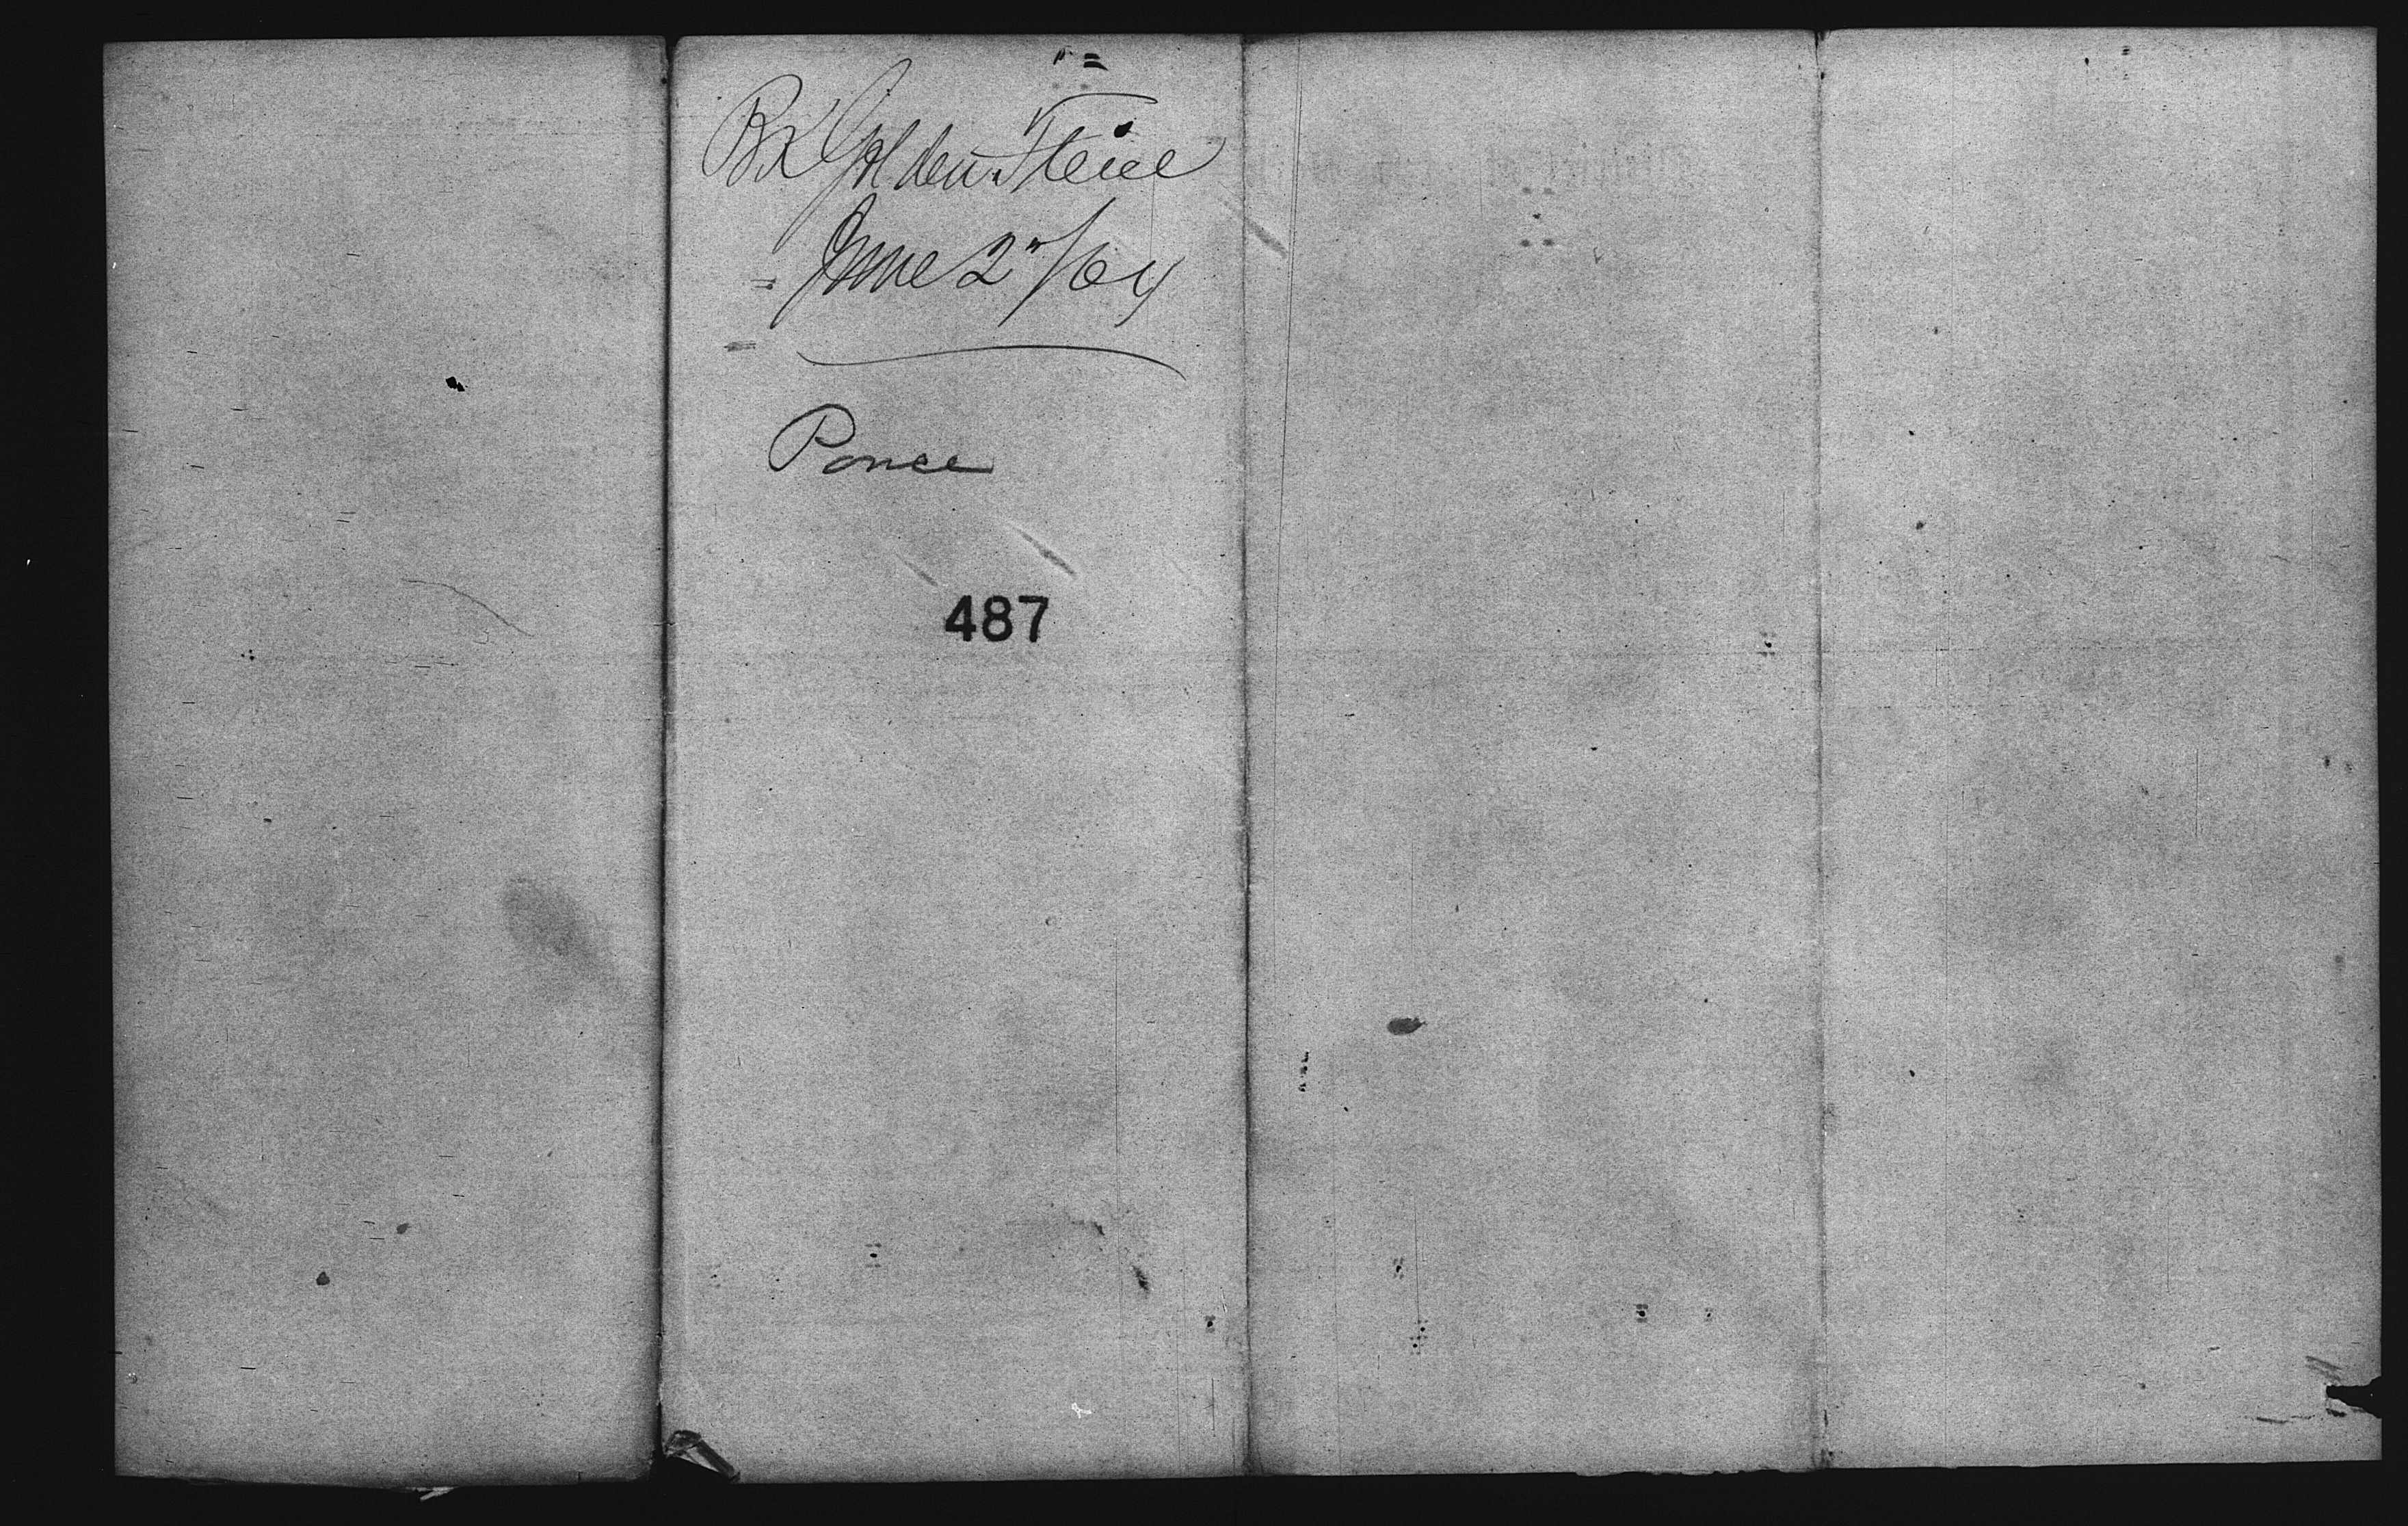 Bk Golden Steiee
June 2"/64
Ponce
487